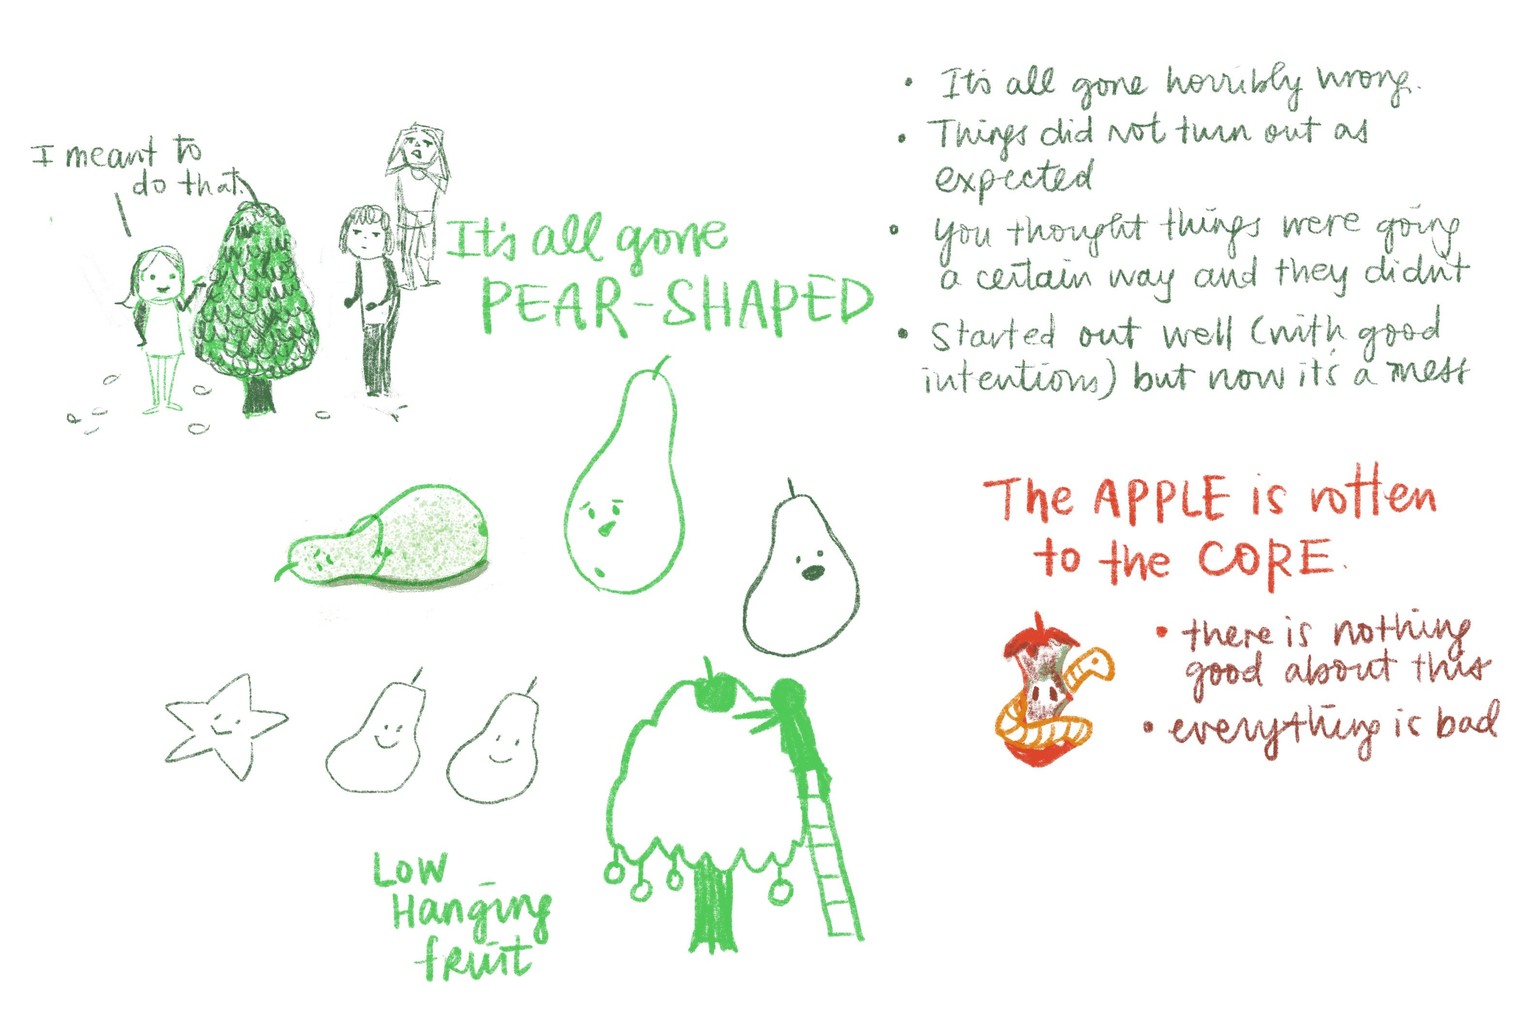 I meant to
do that.
It's all gone
PEAR-SHAPED
• It's all gone horribly wrong.
• Things did not turn out as
expected
• You thought things were going
a certain way and they didn't
• Started out well (with good
intentions) but now it's a mess
The APPLE is rotten
to the CORE.
• there is nothing
good about this
• everything is bad
Low
Hanging
fruit